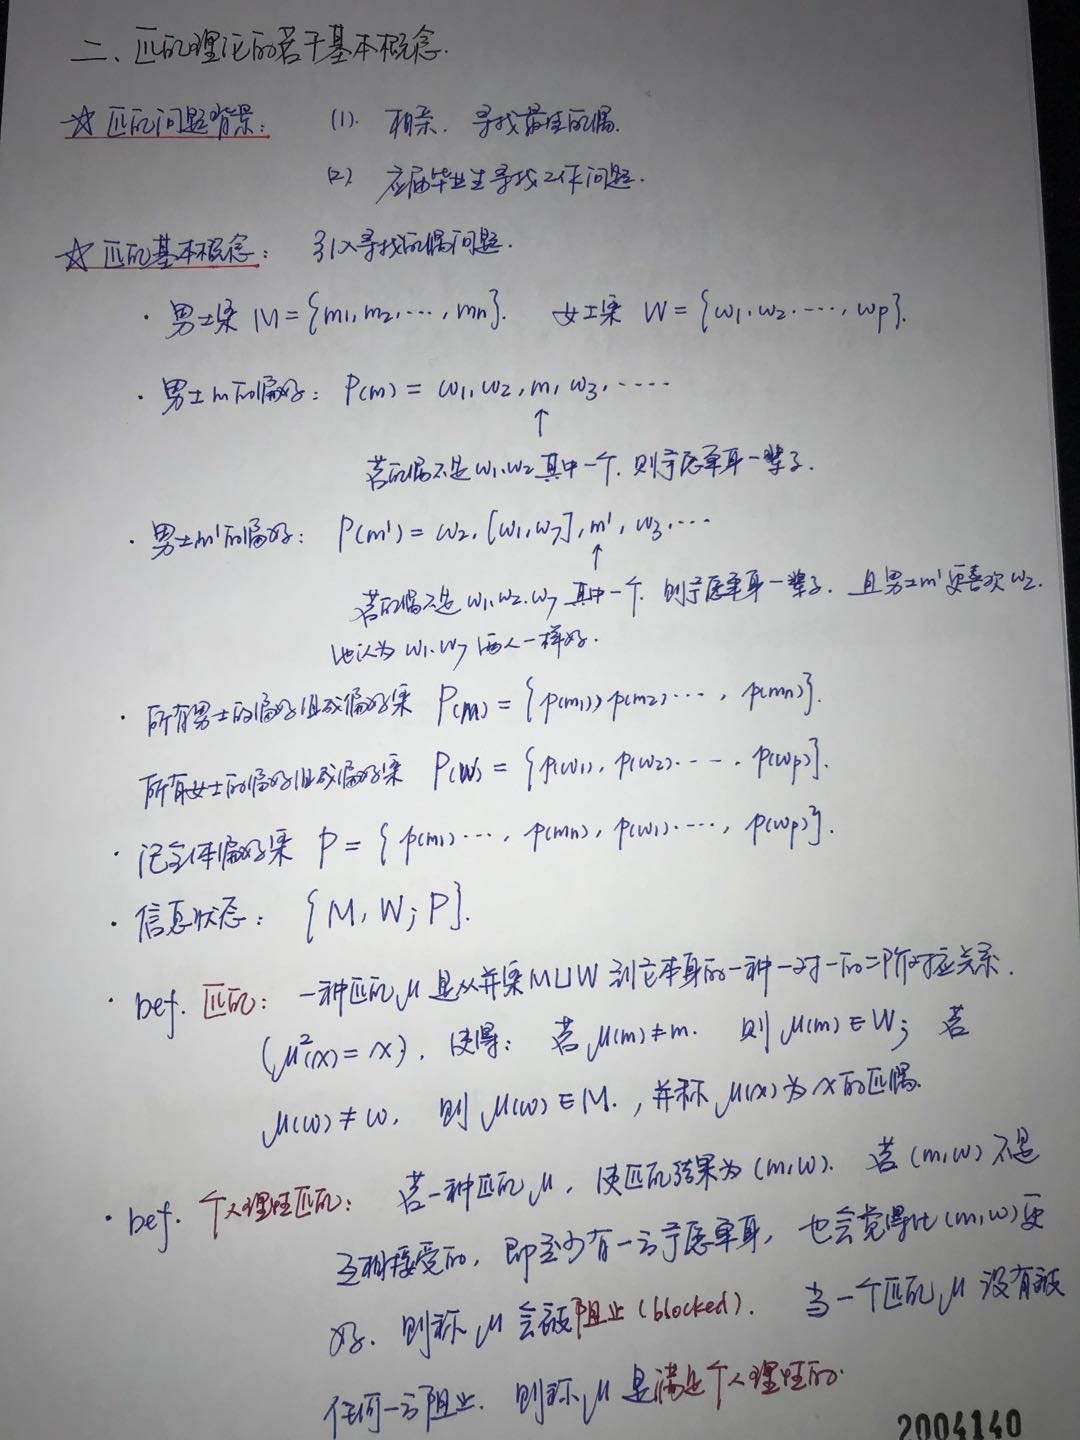 二、匹配理论的若干基本概念.
☆ 匹配问题背景: (1). 相亲. 寻找最佳配偶.
(2) 应届毕业生寻找工作问题.
☆ 匹配基本概念: 引入寻找配偶问题.
· 男士集 M = {m1, m2, ..., mn}. 女士集 W = {w1, w2, ..., wp}.
· 男士m的偏好: P(m) = w1, w2, m, w3, ....
↑
若配偶不是w1, w2其中一个. 则宁愿单身一辈子.
· 男士m'的偏好: P(m') = w2, [w1, w7], m', w3, ...
↑
若配偶不是w1, w2, w7其中一个. 则宁愿单身一辈子. 且男士m'更喜欢w2.
他认为w1, w7两人一样好.
· 所有男士的偏好组成偏好集 P(M) = {p(m1), p(m2) ..., p(mn)}.
所有女士的偏好组成偏好集 P(W) = {p(w1), p(w2) ..., p(wp)}.
· 记全体偏好集 P = {p(m1) ..., p(mn), p(w1) ..., p(wp)}.
· 信息状态: {M, W; P}.
· Def. 匹配: 一种匹配μ是从并集M∪W到它本身的一种一对一的二阶对应关系.
(μ²(x) = x), 使得: 若μ(m) ≠ m. 则μ(m) ∈ W; 若
μ(w) ≠ w. 则μ(w) ∈ M., 并称μ(x)为x的匹偶.
· Def. 个人理性匹配: 若一种匹配μ, 使匹配结果为(m,w). 若(m,w)不是
互相接受的, 即至少有一方宁愿单身, 也会觉得比(m,w)更
好. 则称μ会被阻止(blocked). 当一个匹配μ没有被
任何一方阻止. 则称μ是满足个人理性的.
2004140